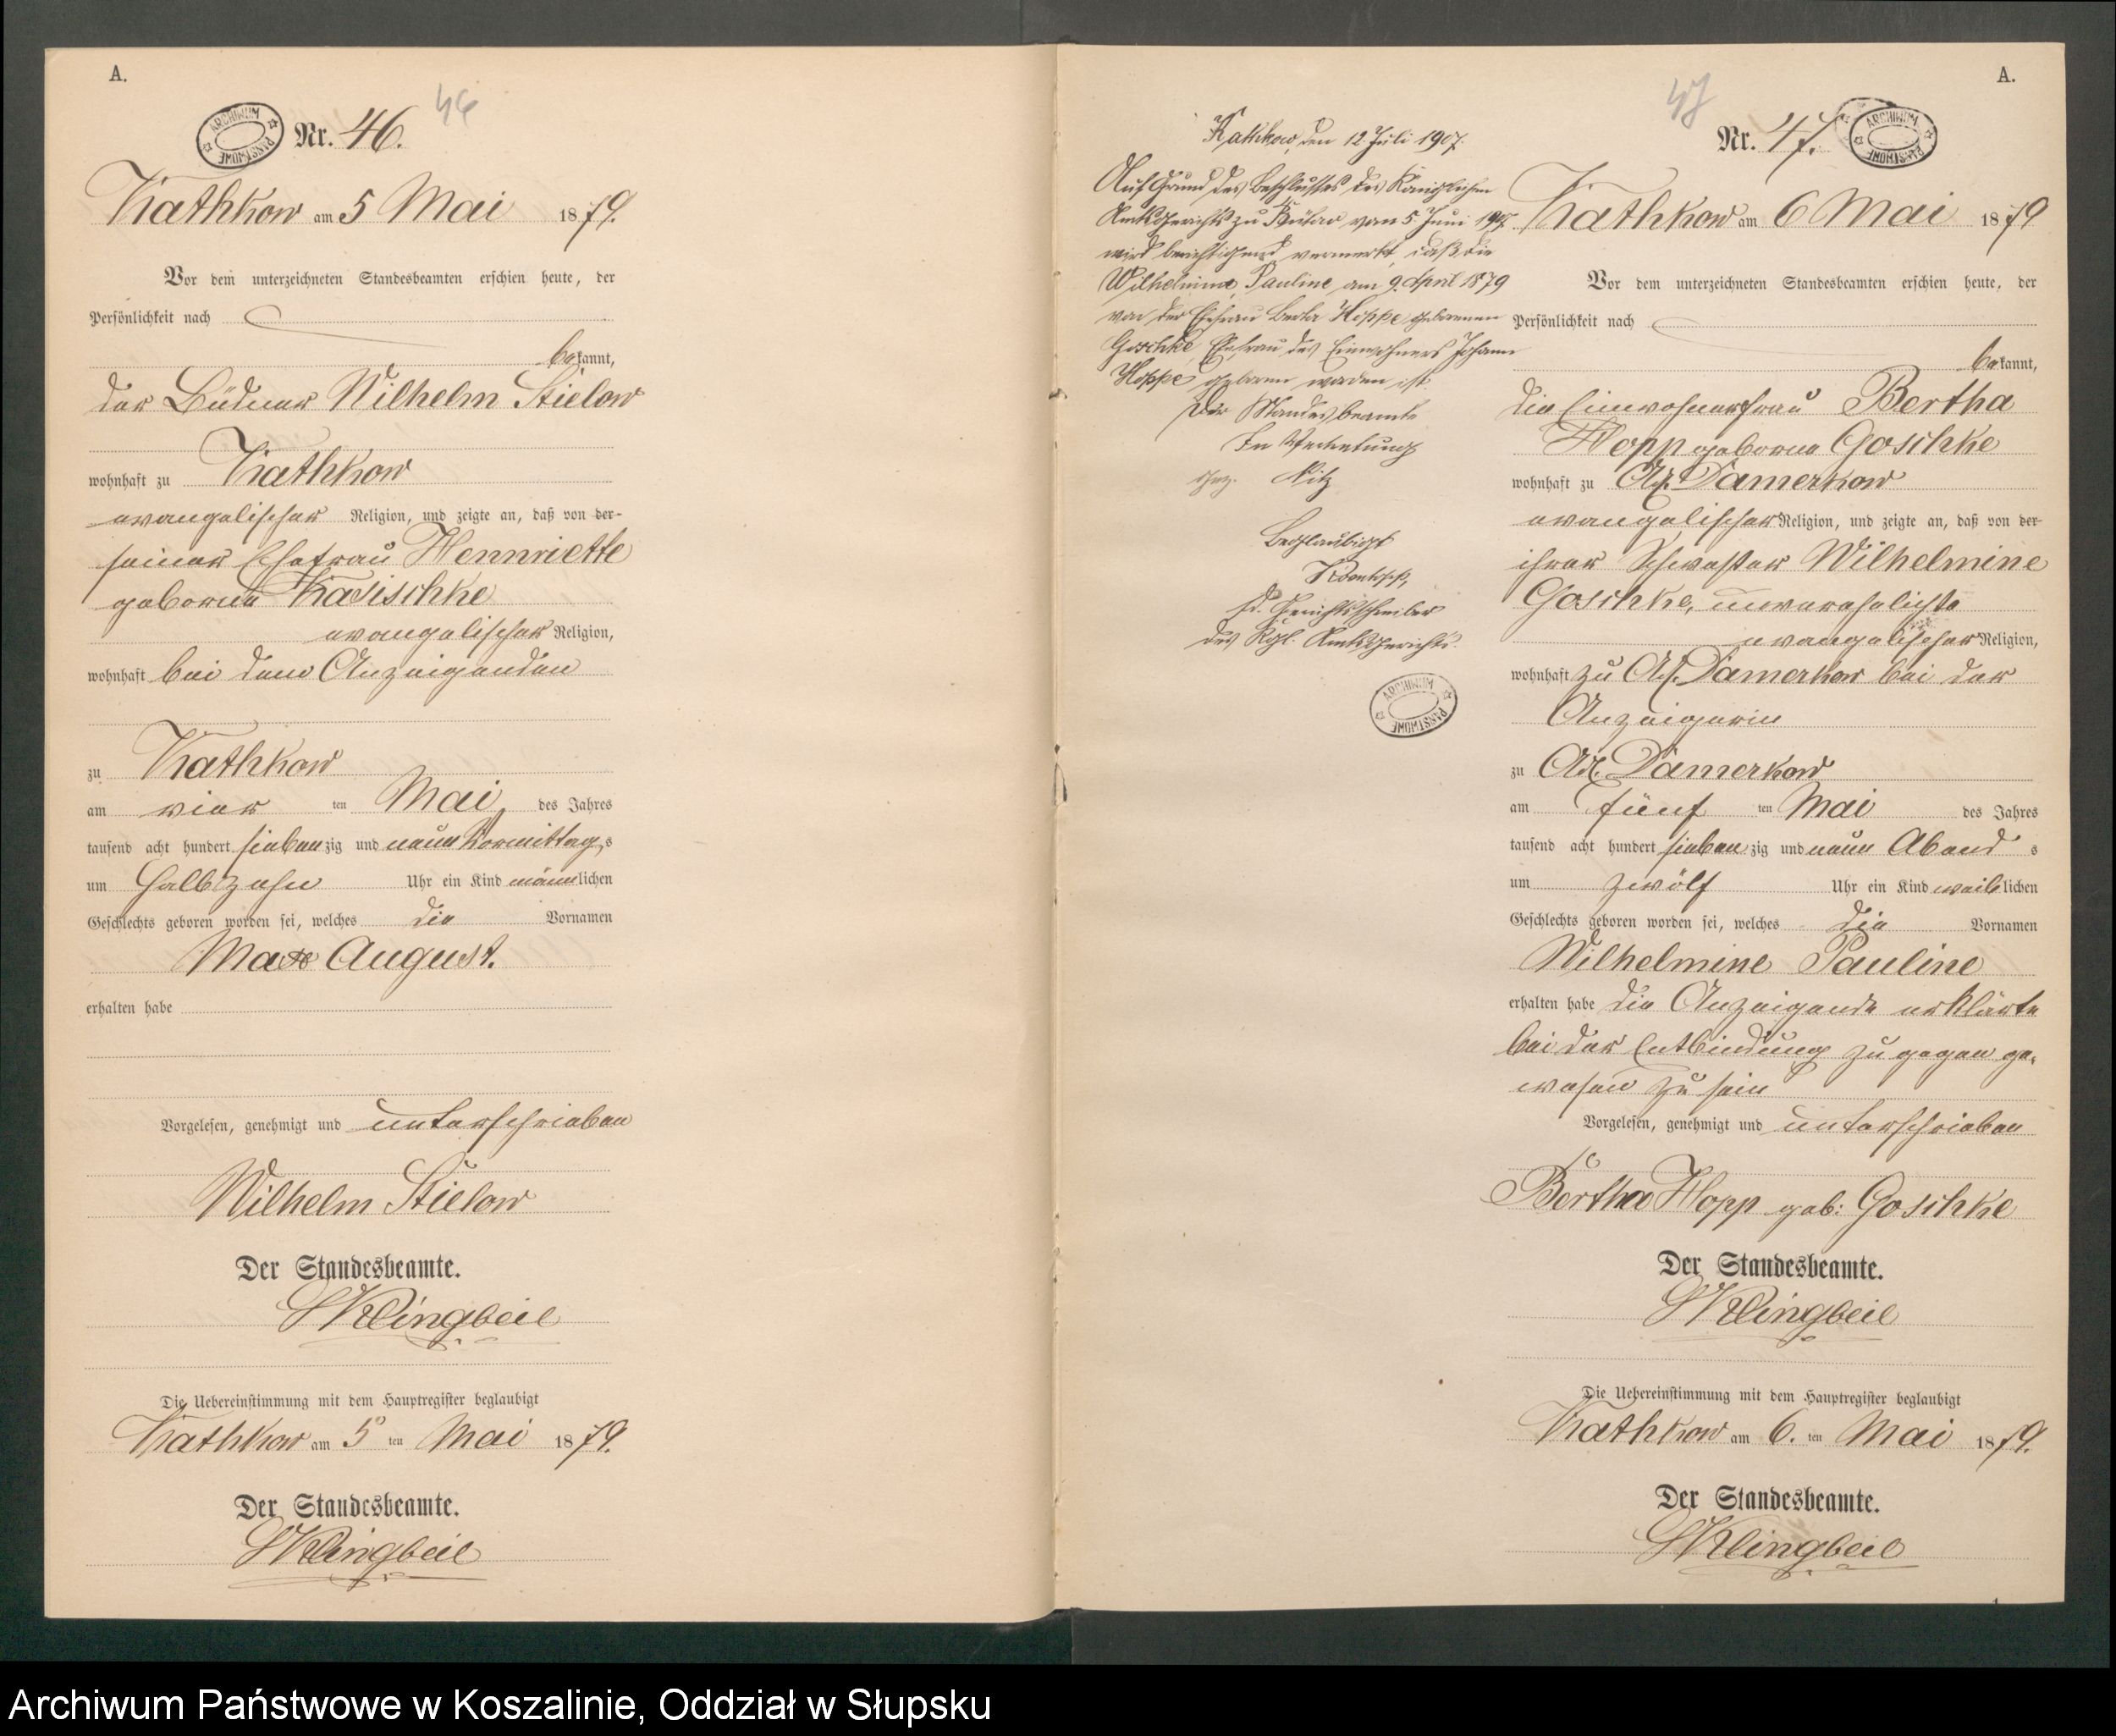 A.
46
ARCHIWUM PAŃSTWOWE
Nr. 46.
Kathkow am 5 Mai 1879.
Vor dem unterzeichneten Standesbeamten erschien heute, der
Persönlichkeit nach
bekannt,
der Büdner Wilhelm Stielow
wohnhaft zu Kathkow
evangelischer Religion, und zeigte an, daß von der-
seiner Ehefrau Hennriette
geborne Kasischke
evangelischer Religion,
wohnhaft bei dem Anzeigenden
zu Kathkow
am vier ten Mai, des Jahres
tausend acht hundert siebenzig und neun Vormittags
um halb zehn Uhr ein Kind männlichen
Geschlechts geboren worden sei, welches die Vornamen
Max August.
erhalten habe
Vorgelesen, genehmigt und unterschrieben
Wilhelm Stielow
Der Standesbeamte.
Klingbeil
Die Uebereinstimmung mit dem Hauptregister beglaubigt
Kathkow am 5 ten Mai 1879.
Der Standesbeamte.
Klingbeil
Kathkow, den 12 Juli 1907.
Auf Grund des Beschlusses des Königlichen
Amtsgerichts zu Bütow vom 5. Juni 1907
wird berichtigend vermerkt, daß die
Wilhelmine Pauline am 9. April 1879
von der Ehefrau Berta Hoppe geborenen
Goschke, Ehefrau des Einwohners Johann
Hoppe geboren worden ist.
Der Standesbeamte
In Vertretung
gez. Nitz
Beglaubigt
Gerichtsschreiber
des Kgl. Amtsgerichts.
ARCHIWUM PAŃSTWOWE
A.
47
Nr. 47.
ARCHIWUM PAŃSTWOWE
Kathkow am 6 Mai 1879
Vor dem unterzeichneten Standesbeamten erschien heute, der
Persönlichkeit nach
bekannt,
die Einwohnerfrau Bertha
Hopp geborne Goschke
wohnhaft zu Adl. Damerkow
evangelischer Religion, und zeigte an, daß von der-
ihrer Schwester Wilhelmine
Goschke, unverehelichte
evangelischer Religion,
wohnhaft zu Adl. Damerkow bei der
Anzeigerin
zu Adl. Damerkow
am fünf ten Mai des Jahres
tausend acht hundert siebenzig und neun Abends
um zwölf Uhr ein Kind weiblichen
Geschlechts geboren worden sei, welches die Vornamen
Wilhelmine Pauline
erhalten habe die Anzeigende erklärte
bei der Entbindung zu gegen ge-
wesen zu sein
Vorgelesen, genehmigt und unterschrieben
Bertha Hopp geb: Goschke
Der Standesbeamte.
Klingbeil
Die Uebereinstimmung mit dem Hauptregister beglaubigt
Kathkow am 6. ten Mai 1879.
Der Standesbeamte.
Klingbeil
Archiwum Państwowe w Koszalinie, Oddział w Słupsku